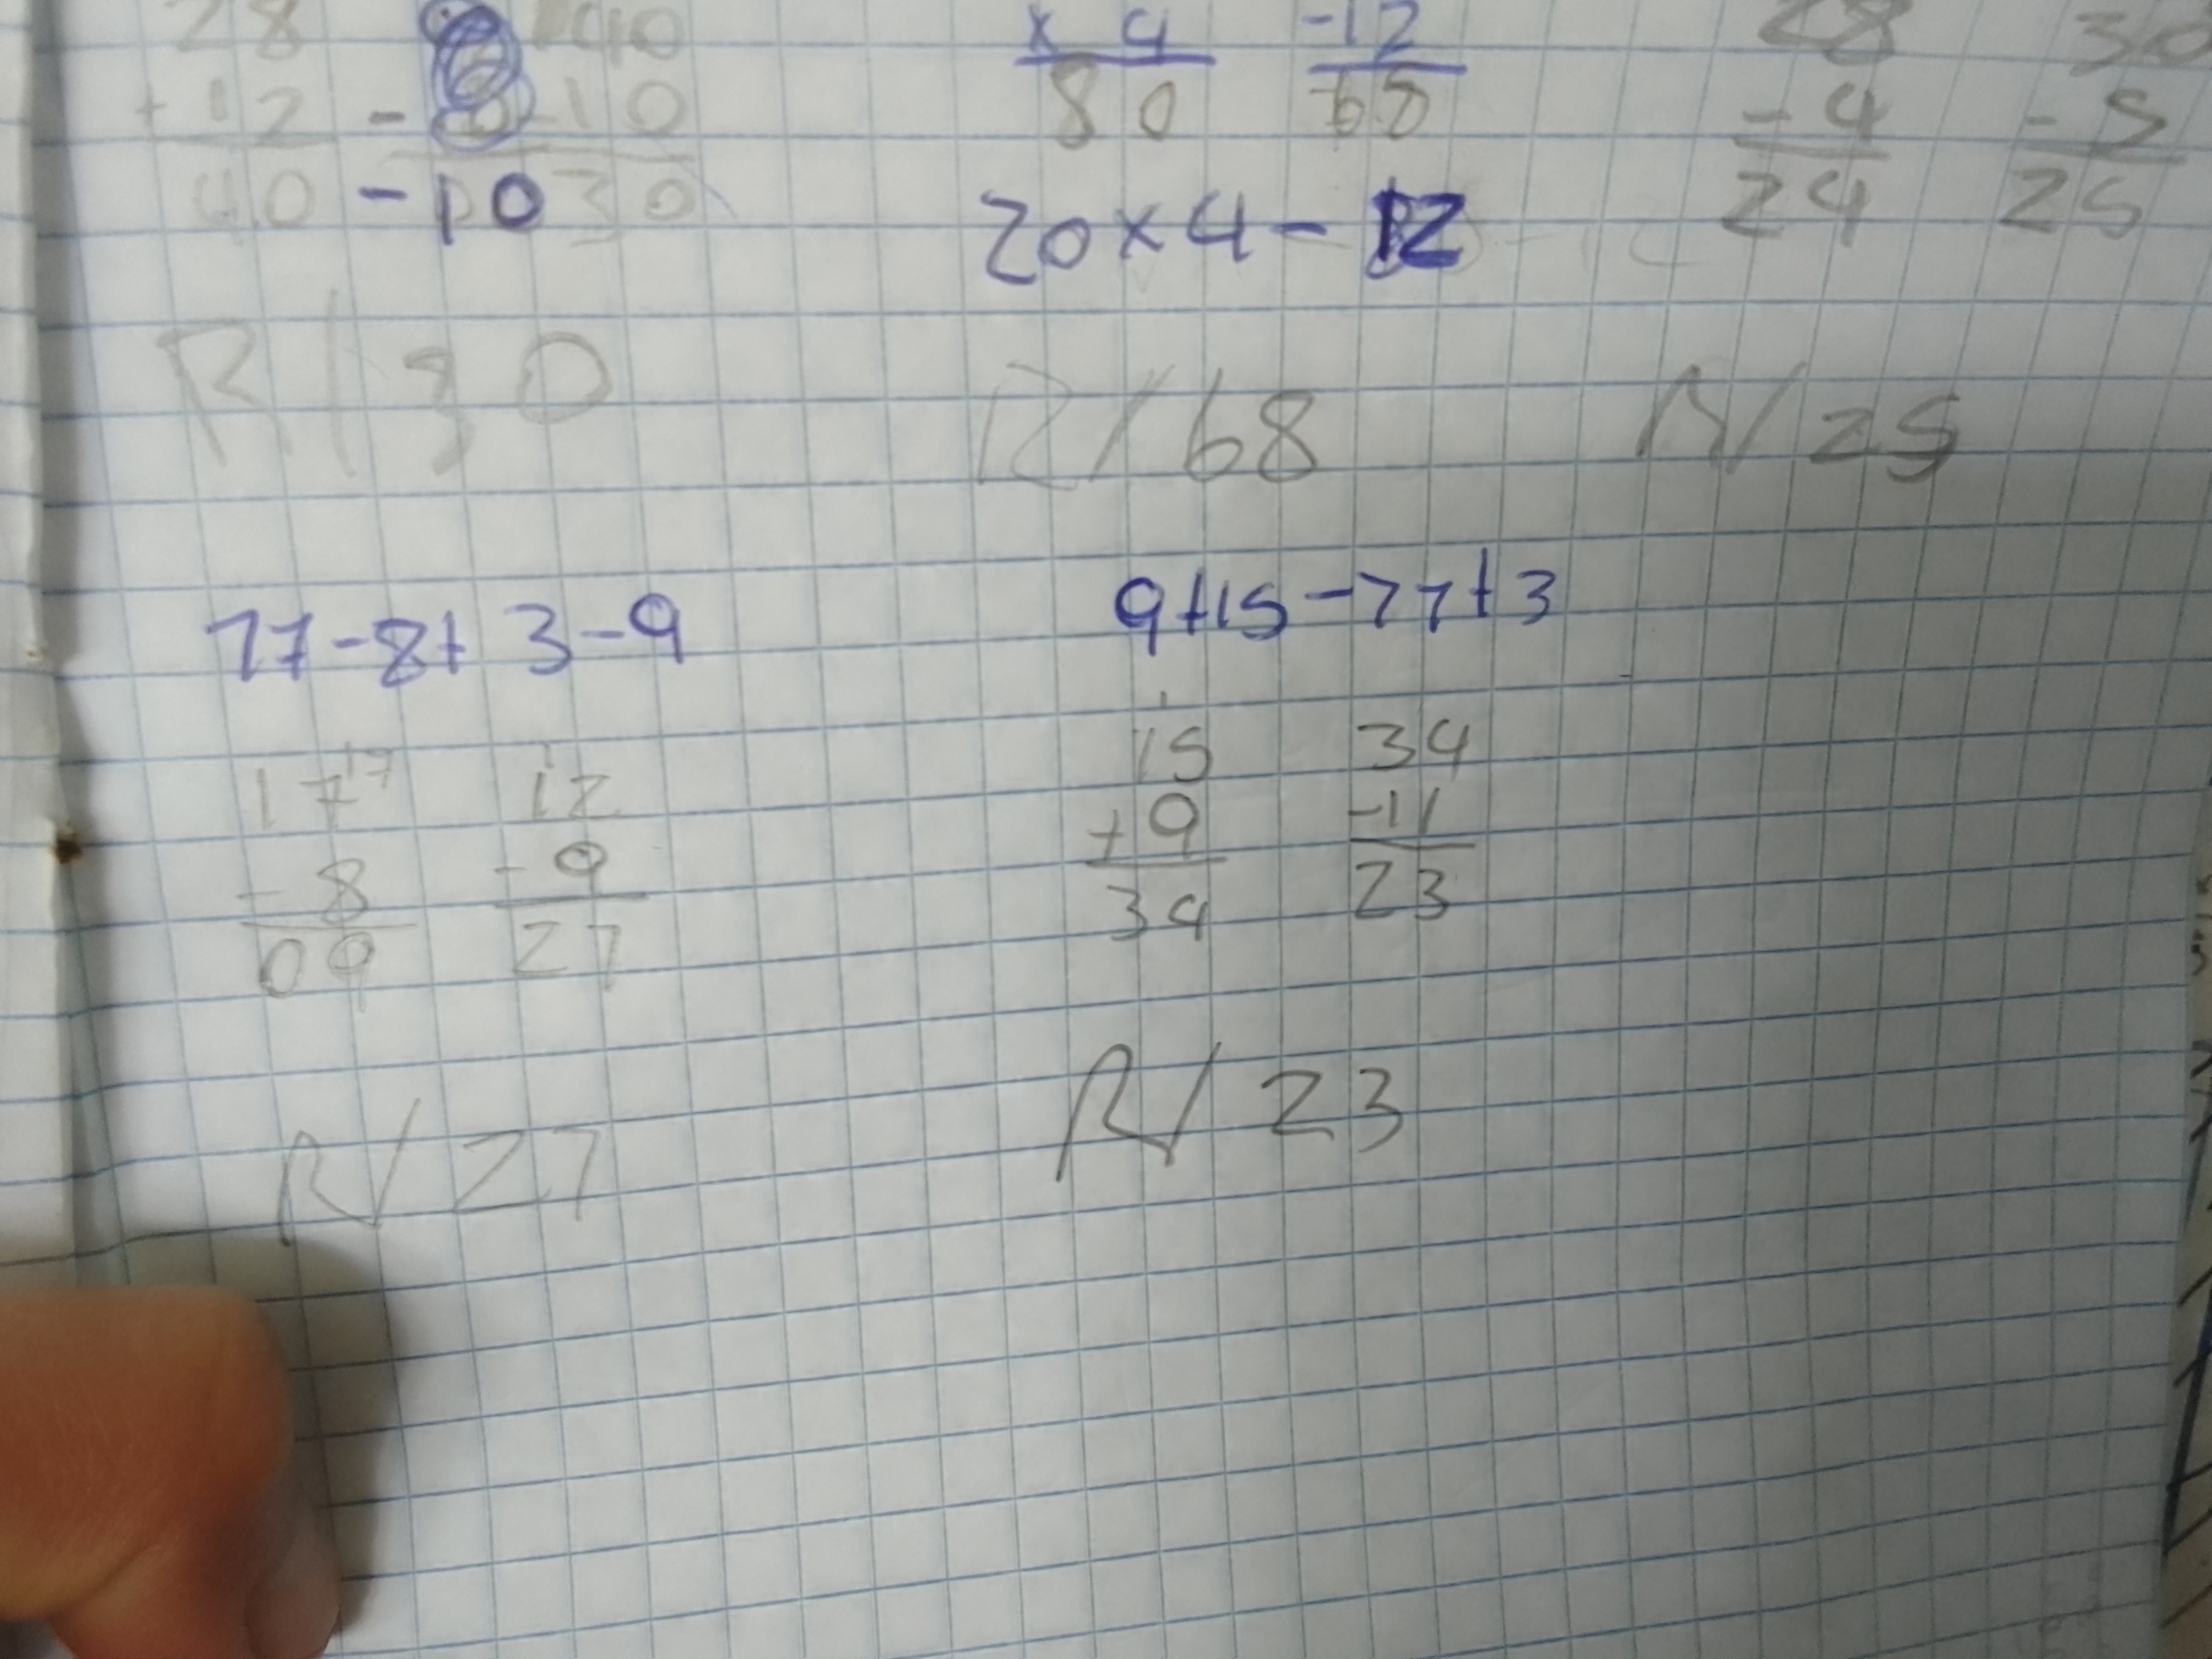 28 40 x 4 -12 28 30
+ 12 - 10 80 68 - 4 - 5
40 - 10 30 20 x 4 - 12 24 25
R/30 R/68 R/25
17-8+ 3-9 9+15-77+3
1
17 17 12 15 34
- 8 - 9 + 9 -11
09 27 34 23
R/27 R/ 23